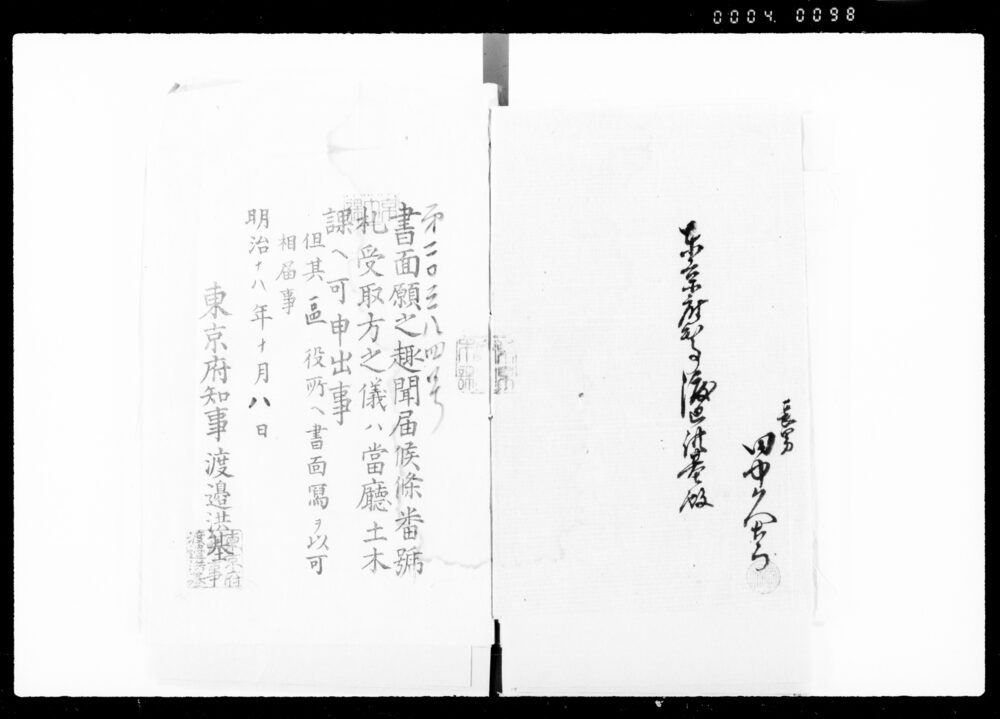 0004 0098
長男
田中久
東京府知事渡邉洪基殿
第二〇三八四号
書面願之趣聞届候條番號
札受取方之儀ハ當廳土木
課ヘ可申出事
但其區役所ヘ書面寫ヲ以可
相届事
明治十八年十月八日
東京府知事渡邉洪基